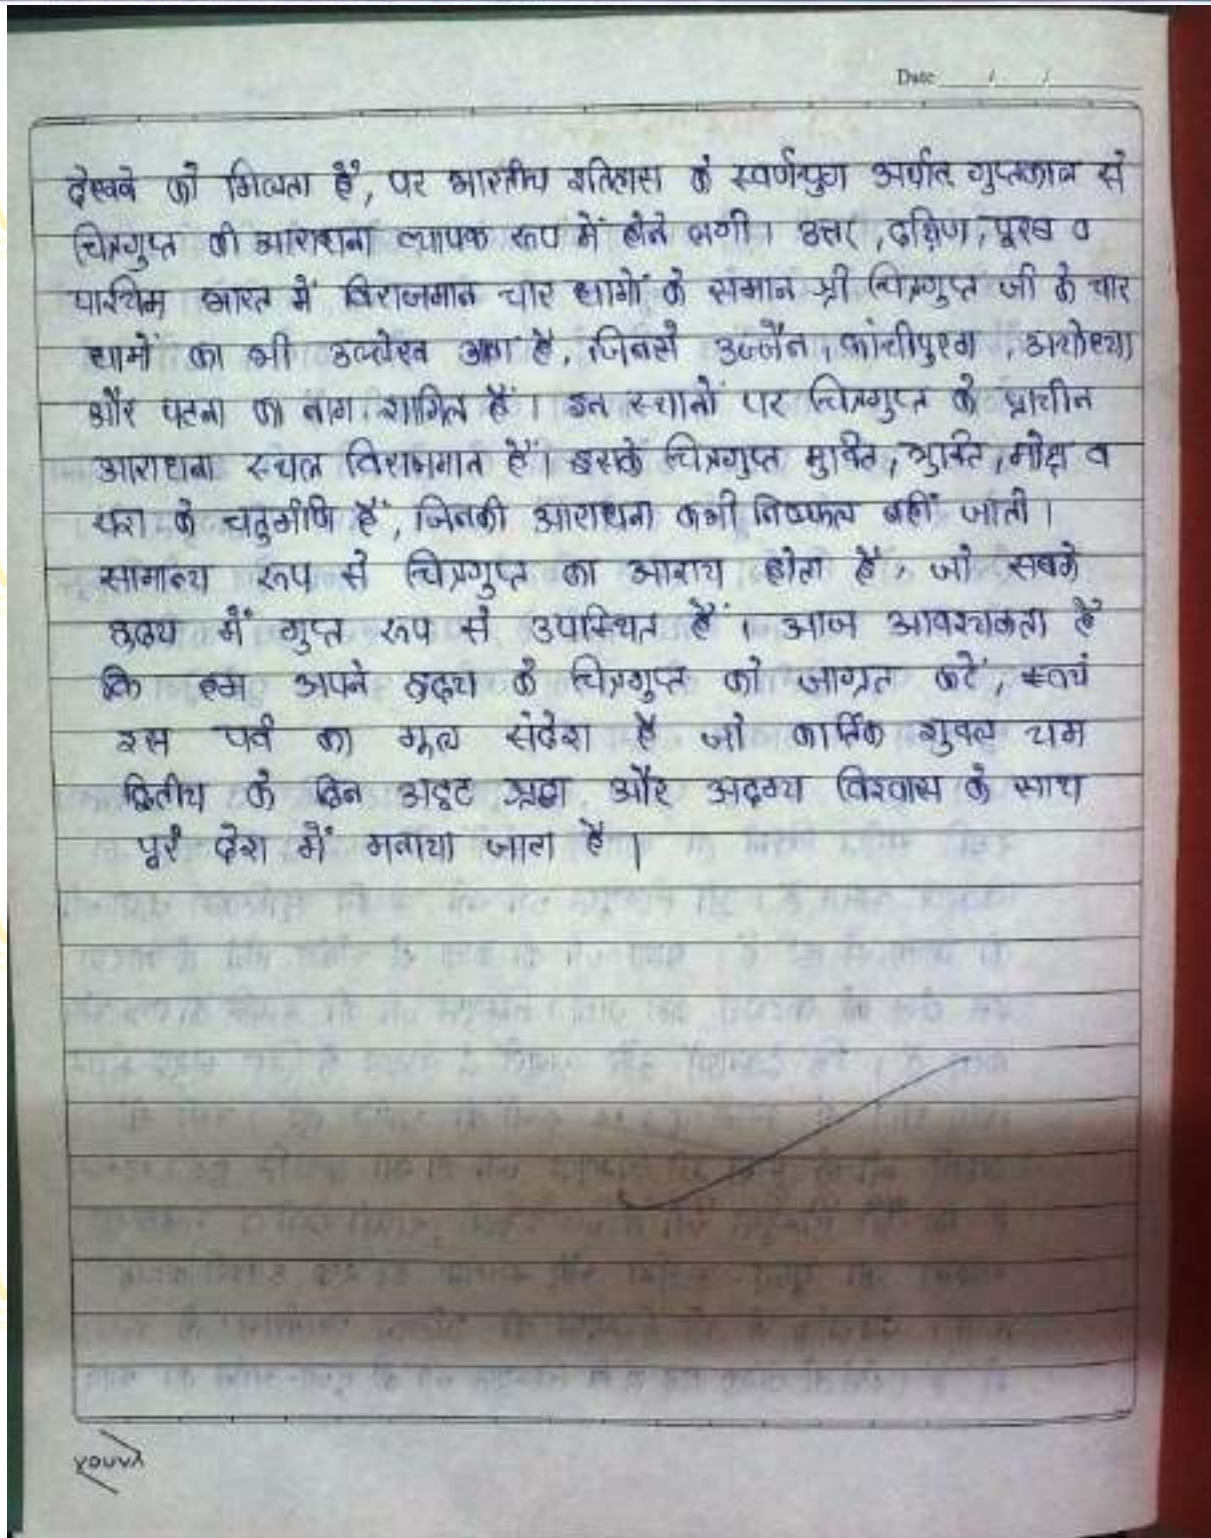 Date / /
देखने को मिलता है, पर भारतीय इतिहास के स्वर्णयुग अर्थात् गुप्तकाल से
चित्रगुप्त की आराधना व्यापक रूप में होने लगी। उत्तर, दक्षिण, पूरब व
पश्चिम भारत में विराजमान चार धामों के समान श्री चित्रगुप्त जी के चार
धामों का भी उल्लेख आता है, जिनसे उज्जैन, कांचीपुरम, अयोध्या
और पटना का नाम शामिल हैं। इन स्थानों पर चित्रगुप्त के प्राचीन
आराधना स्थल विराजमान हैं। इसके चित्रगुप्त मुक्ति, भुक्ति, मोक्ष व
यश के हैं, जिनकी आराधना कभी निष्फल नहीं जाती।
सामान्य रूप से चित्रगुप्त का होता है, जो सबके
हृदय में गुप्त रूप से उपस्थित हैं। आज आवश्यकता है
कि हम अपने हृदय के चित्रगुप्त को जाग्रत करें,
इस पर्व का मूल संदेश है जो कार्तिक शुक्ल यम
द्वितीय के दिन अटूट श्रद्धा और अदम्य विश्वास के साथ
पूरे देश में मनाया जाता है।
youva